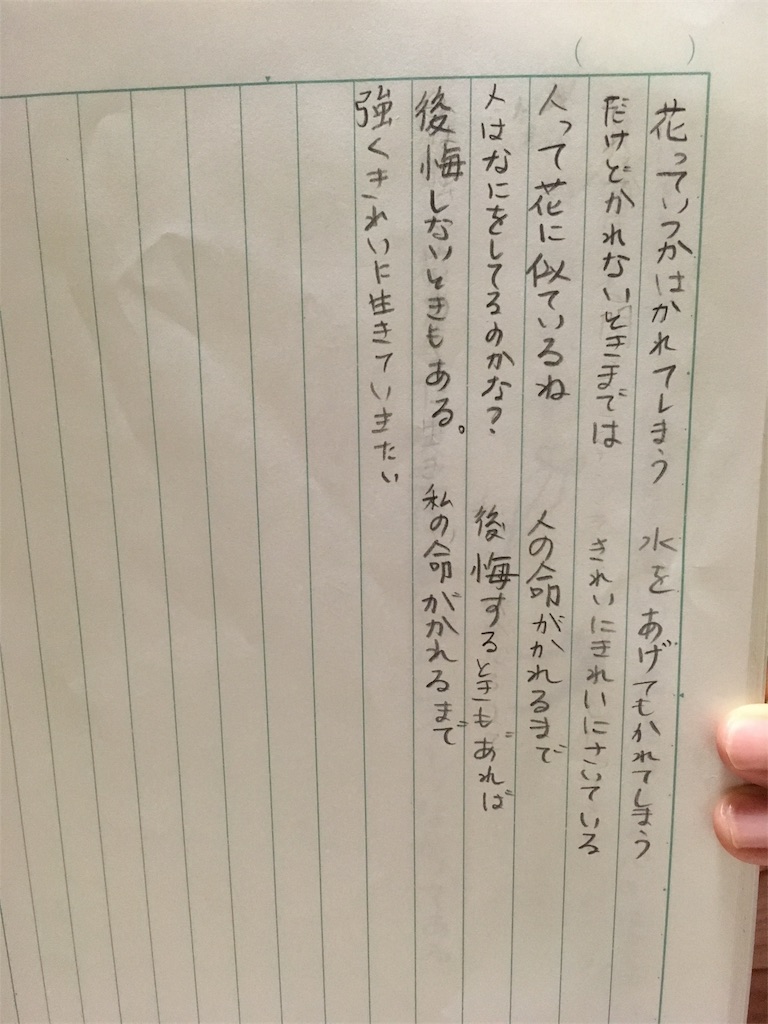 (　　　)
花っていつかはかれてしまう　水をあげてもかれてしまう
だけどかれないときまでは　きれいにきれいにさいている
人って花に似ているね　人の命がかれるまで
人はなにをしてるのかな？　後悔するときもあれば
後悔しないときもある。　私の命がかれるまで
強くきれいに生きていきたい